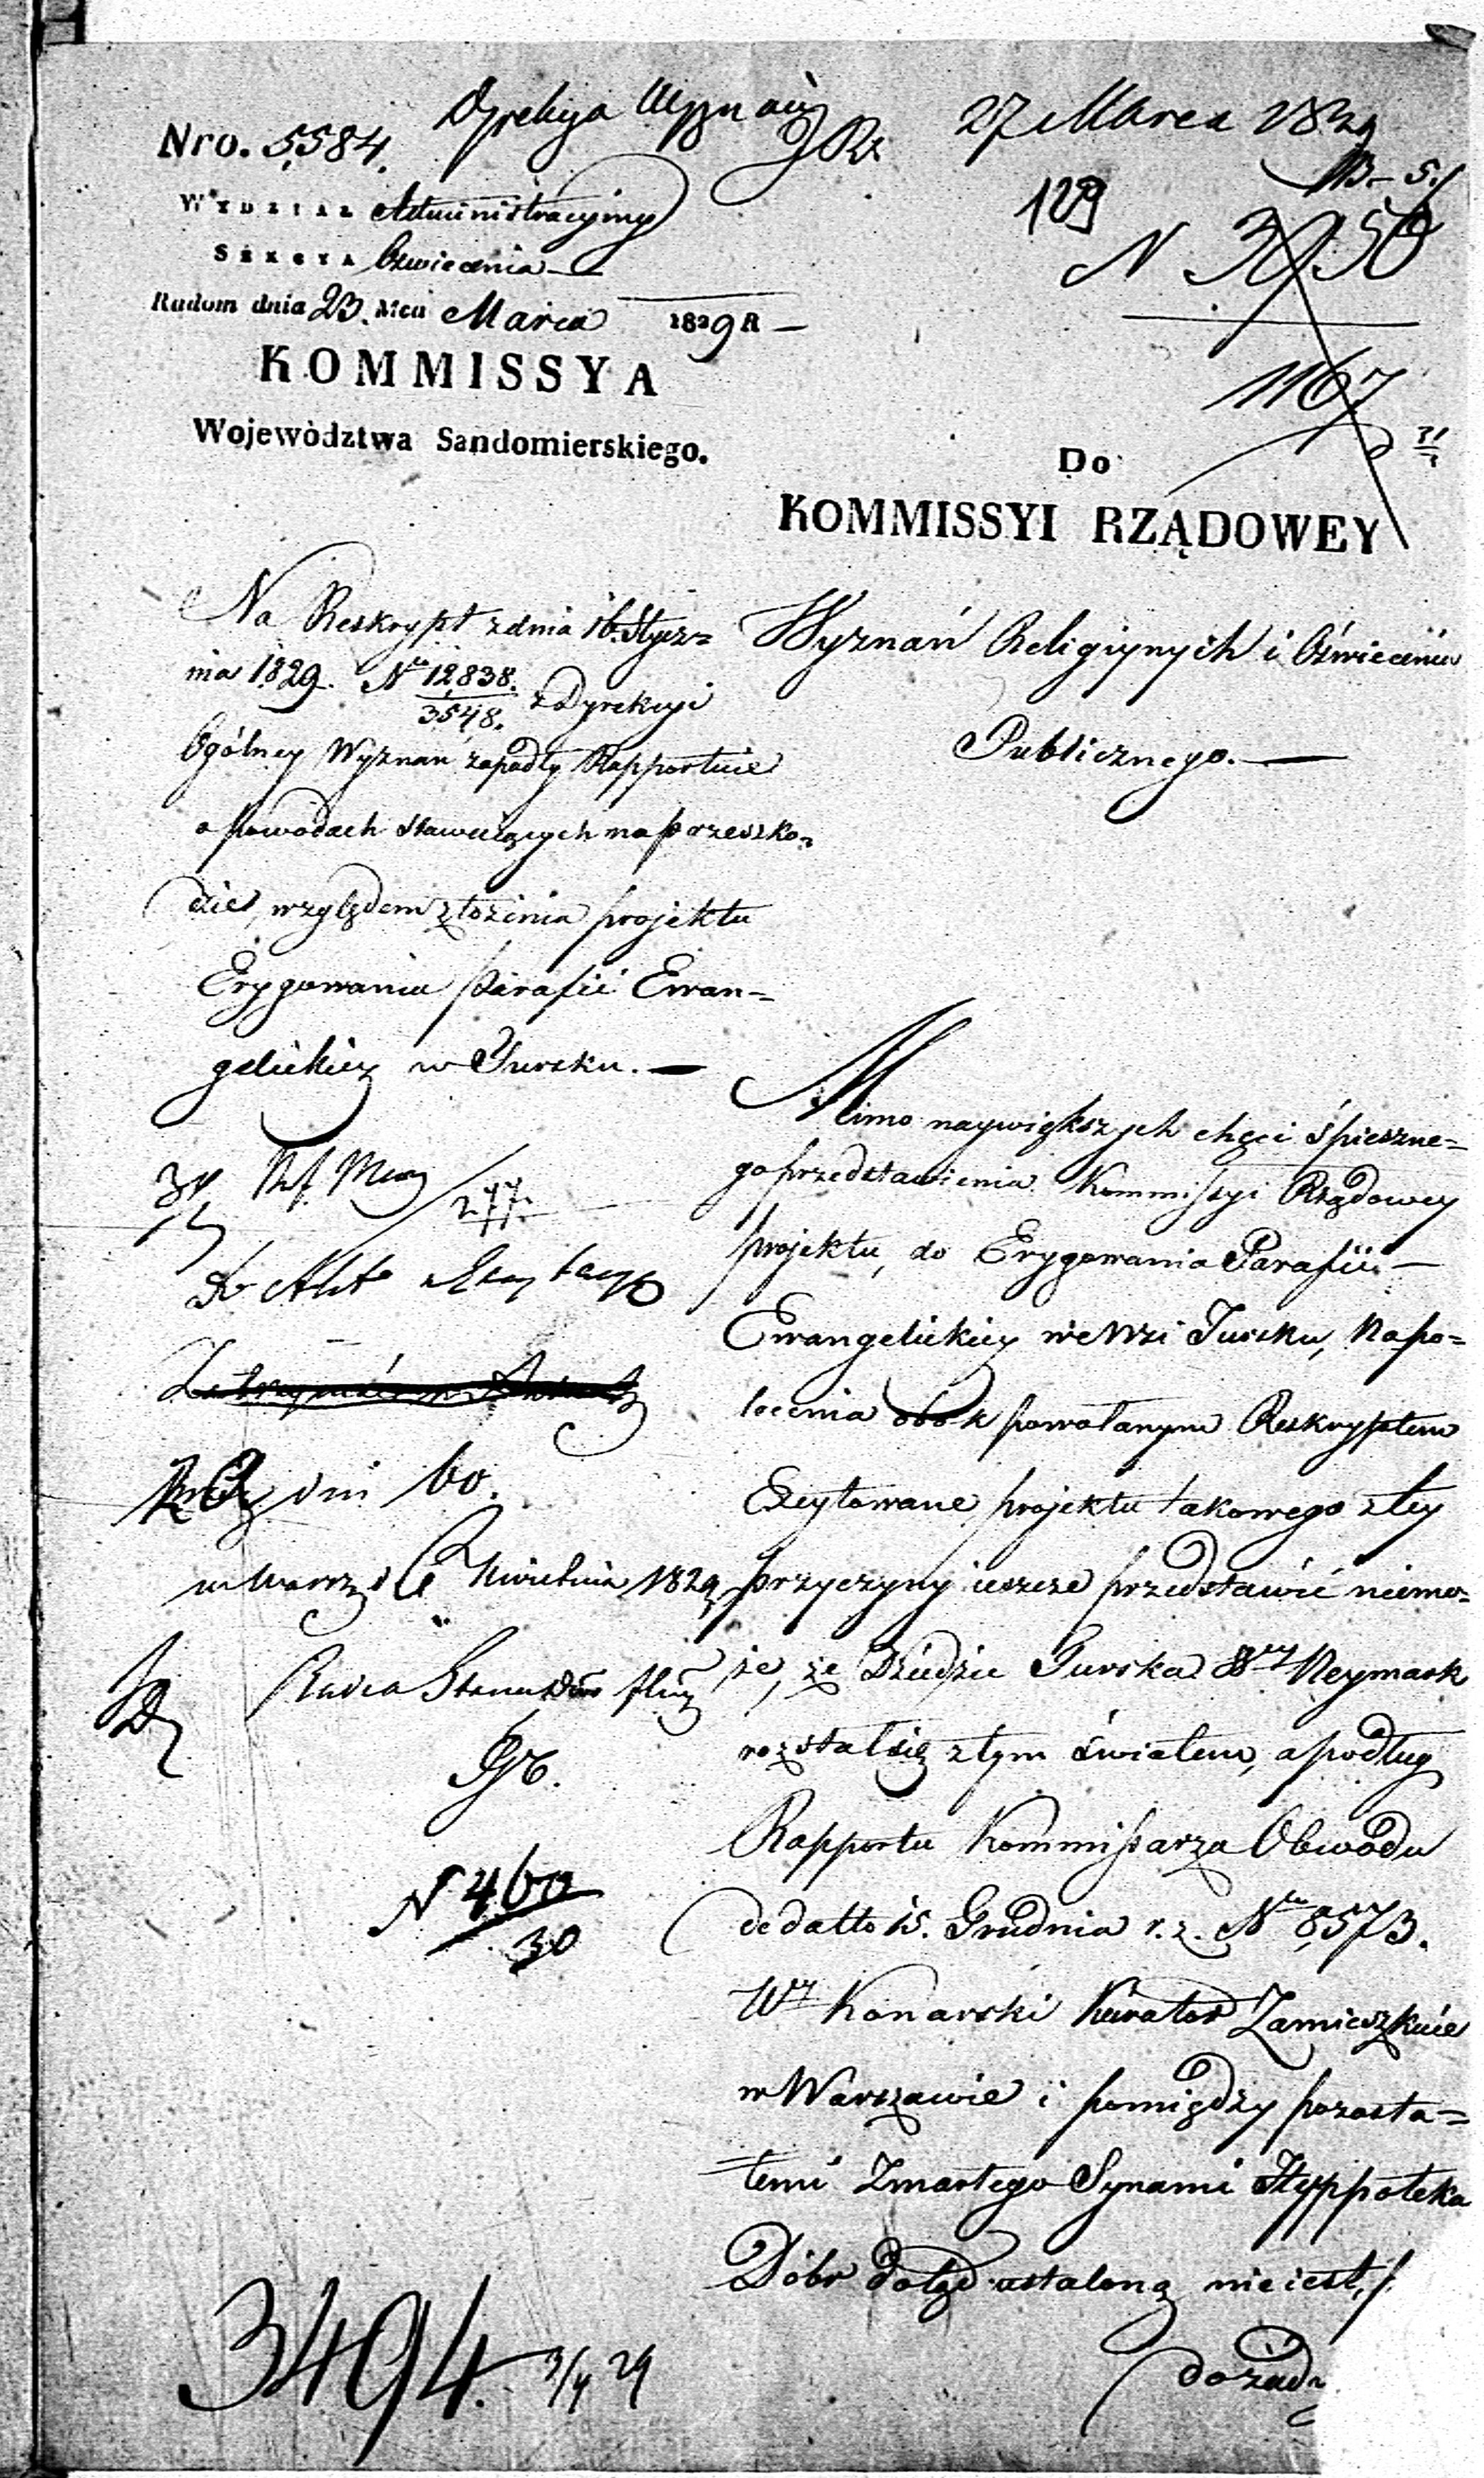 Dyrekcya Wyznań
27 Marca 1829
Nro. 5584.
129
WYDZIAŁ Administracyiny
N 3950
SEKCYA Oświecenia
Radom dnia 23. Mca Marca 1829 R
1167
KOMMISSYA
Województwa Sandomierskiego.
Do
KOMMISSYI RZĄDOWEY
Wyznań Religiynych i Oświecenia
Publicznego.
Na Reskrypt z dnia 16. Stycz=
nia 1829. Nro 12838./3548. z Dyrekcyi
Ogólney Wyznań zapadły Rapportuie
o powodach stawaiących na przeszko=
dzie, względem złożenia projektu
Erygowania Parafii Ewan=
gelickiey w Tursku.
277.
dni 60.
w Warsz d 6 Kwietnia 1829
Radca Stanu
N 460
30
3494. 3/4 29
Mimo naywiększych chęci śpieszne=
go przedstawienia Kommissyi Rządowey
projektu, do Erygowania Parafii
Ewangelickiey we Wsi Tursku, na po=
lecenia obok powołanym Reskryptem
Excytowane, projektu takowego z tey
przyczyny ieszcze przedstawić niemo=
że, że Dziedzic Turska Neymark
rozstał się z tym światem, a podług
Rapportu Kommissarza Obwodu
de datto 15. Grudnia r. z. Nro 8573.
Wy Konarski Kurator Zamieszkuie
w Warszawie i pomiędzy pozosta=
łemi Zmarłego Synami Hyppoteka
Dóbr dotąd ustaloną nie iest,